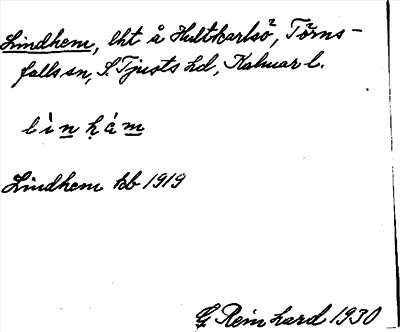 Lindhem, lht å Hultkarlsö², Tö²rns-
falls sn, S. Tjusts hd, Kalmar l.
lìnḥám
Lindhem kb 1919
G Reinhard 1930